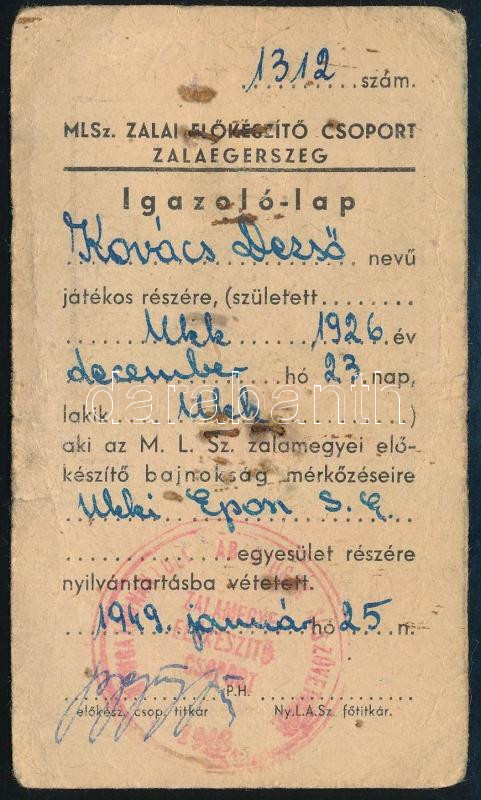 1312 szám.
MLSz. ZALAI ELŐKÉSZÍTŐ CSOPORT
ZALAEGERSZEG
Igazoló-lap
Kovács Dezső nevű
játékos részére, (született
Ukk 1926 év
december hó 23. nap,
lakik Ukk )
aki az M. L. Sz. zalamegyei elő-
készítő bajnokság mérkőzéseire
Ukki Eposz S. E.
egyesület részére
nyilvántartásba vétetett.
1949. január hó 25 n.
ZALAMEGYEI
ELŐKÉSZÍTŐ
CSOPORT
P.H.
előkész. csop. titkár Ny.L.A.Sz. főtitkár.
darabanth